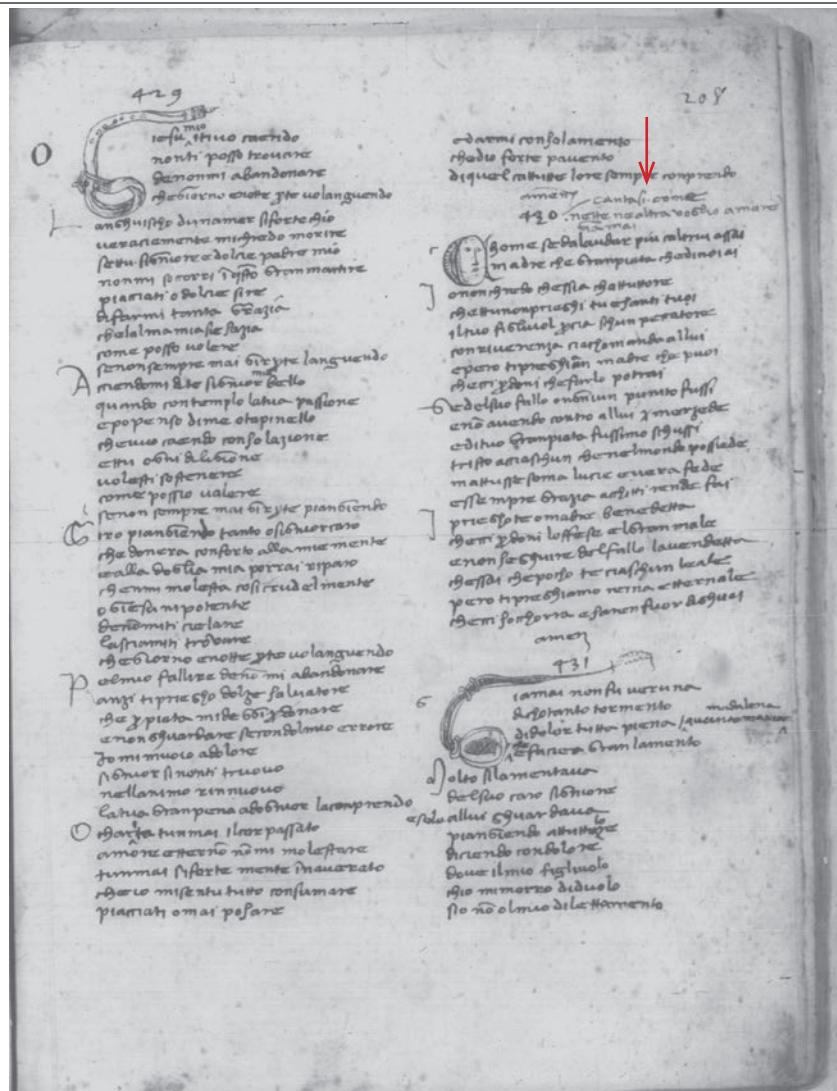 429
O
iesu mio ittivo caendo
non ti posso trovare
de non mi abandonare
che giorno e notte pte vo languendo
languischo
veraciemente mi chredo morire
signiore e dolcie padre mio
non mi socorri
piacciati o dolcie sire
di farmi tanta grazia
che lalma mia se sazia
come posso volere
se non sempre mai languendo
Acciendomi di te signior mio bello
quando contemplo la tua passione
e po penso di me o tapinello
che vivo caendo consolazione
ettu ogni
volesti sostenere
come possio valere
senon sempre mai piangiendo
Giro piangiendo tanto o signior caro
che donera conforto alla mie mente
e alla doglia mia porrai riparo
che mi molesta cosi crudelmente
o giesu nipotente
cielare
lasciamiti trovare
che giorno e notte pte vo languendo
Pelmio fallire deno mi abandonare
anzi ti priegho dolze salvatore
che p pieta donare
e non sghuardare secondo lmio errore
Io mi muoio a dolore
signior si non ti truovo
nellanimo rinnuovo
la tua gran pena signior la comprendo
O charita tun mai il cor passato
amore etterno no mi molestare
tun mai si forte mente inaverato
che io mi sentu tutto consumare
piacciati omai posare
208
e darmi consolamento
chedio forte pavento
di quel cattivo lore sempre conprendo
amen
cantasi come
430 nette ne altra voglio amare
gia mai
home se da laudar piu caltrui assai
madre che gran piata
I o non chredo chessia
chettu non prieghi tu e santi tuoi
il tuo figliuol pcia schun peccatore
con riverenza ci achomanda allui
epero ti preghian madre che puoi
checci pdoni che farlo potrai
Se del suo fallo ongniun punito fussi
e no avendo contro allui merzede
e di tuo gran piata fussimo schussi
tristo acciaschun che nel mondo possiede
mattusse soma lucie e vera fede
essempre grazia achitti rende fai
I priegho te o madre benedetta
checci pdoni loffese el gran male
e non seghuire del fallo la vendetta
chessai che pocho te ciaschun leale
pero ti preghiamo reina etternale
checci sochorra
amen
431
g
iamai non fu veruna
di chotanto tormento
di dolor tutta piena madalena
e faciera gran lamento
Molto si lamentava
del suo caro signiore
e solo allui sghuardava
piangiendo attutte lo re
diciendo con dolore
dove il mio figliuolo
chio mi morro di duolo
sio no o lmio dilettamento